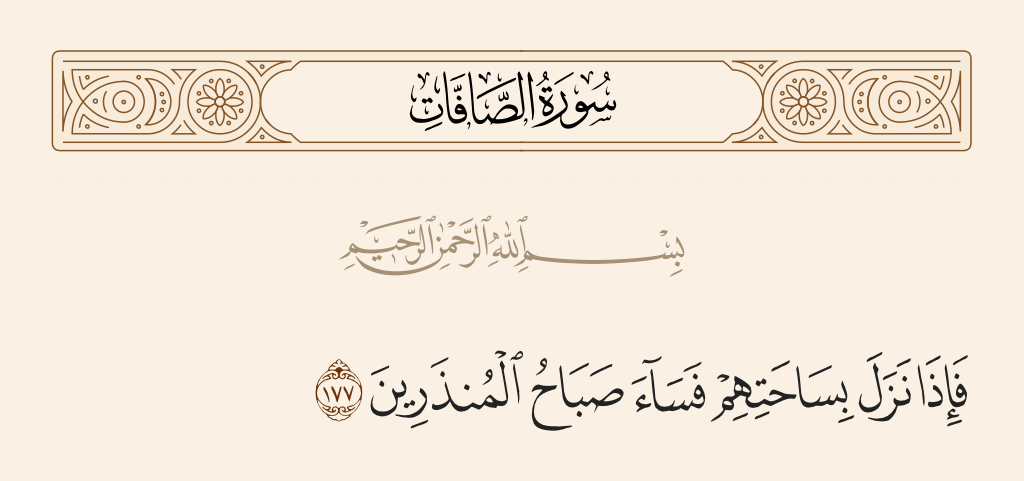 سُورَةُ الصَّافَّاتِ
بِسْمِ ٱللَّهِ ٱلرَّحْمَٰنِ ٱلرَّحِيمِ
فَإِذَا نَزَلَ بِسَاحَتِهِمْ فَسَآءَ صَبَاحُ ٱلْمُنذَرِينَ ١٧٧